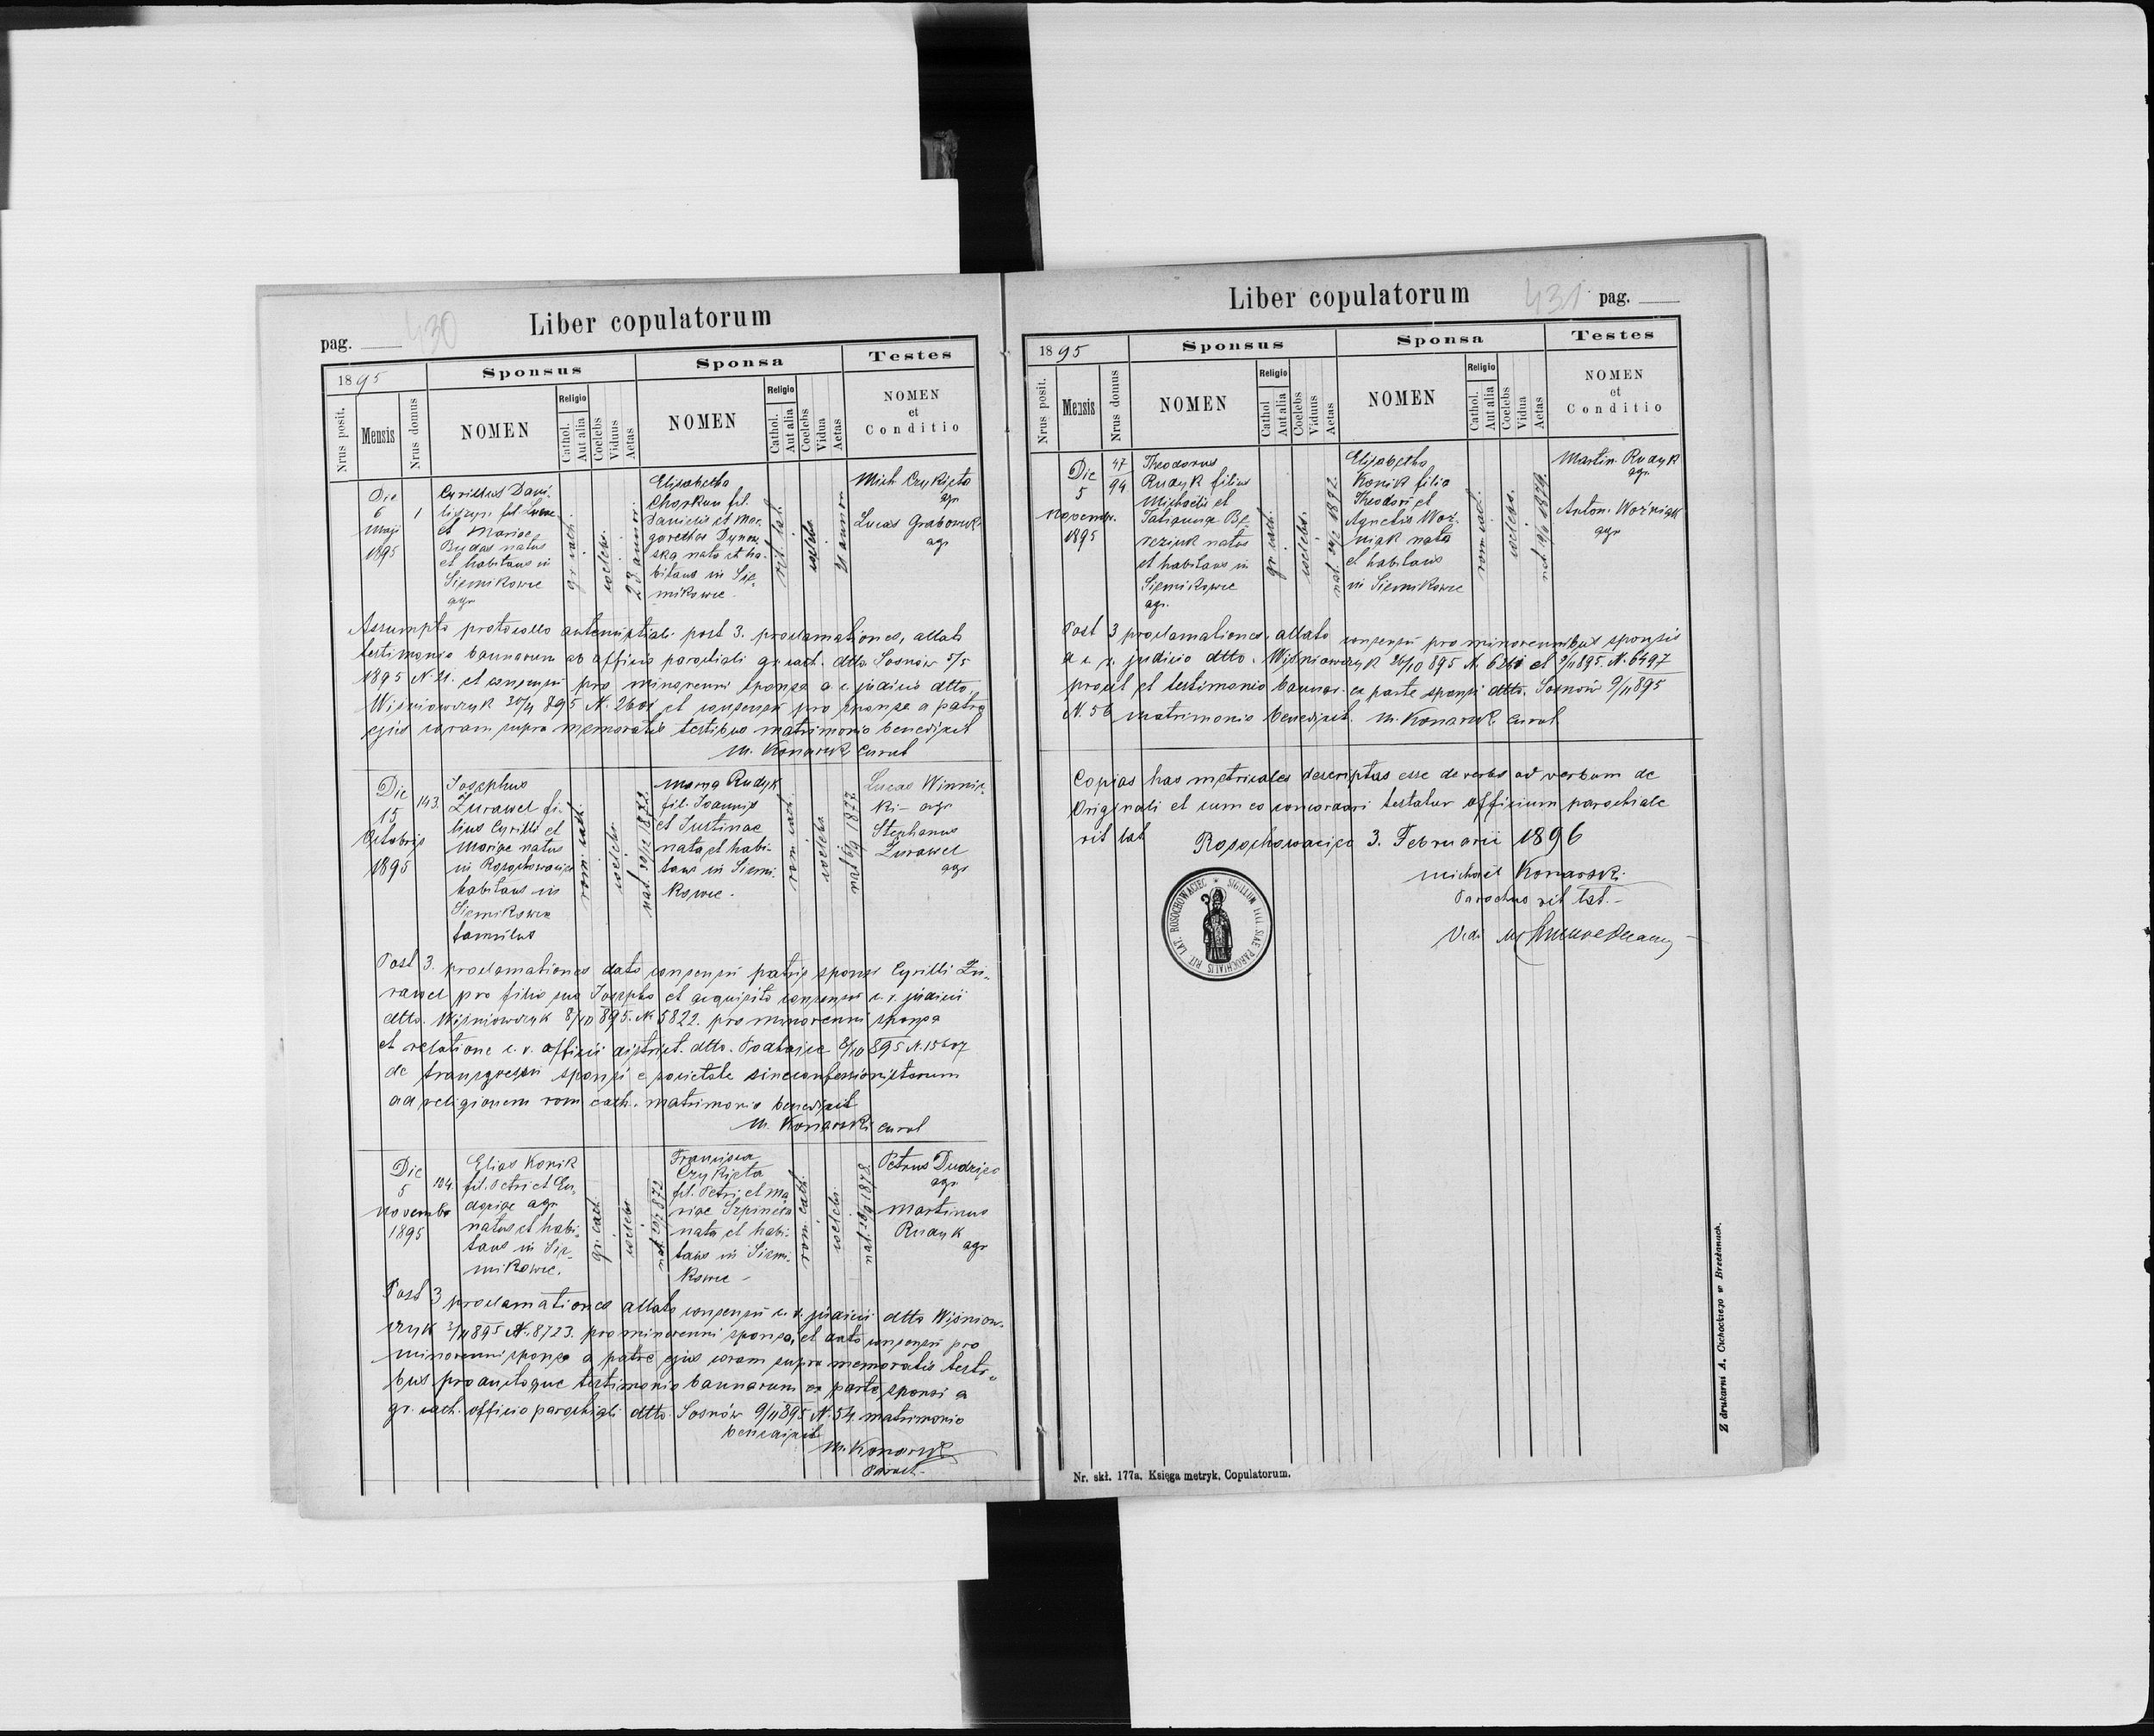 pag. 430
Liber copulatorum
1895
Sponsus
Sponsa
Testes
Nrus posit.
Mensis
Nrus domus
NOMEN
Religio
Cathol.
Aut alia
Coelebs
Viduus
Aetas
NOMEN
Religio
Cathol.
Aut alia
Coelebs
Vidua
Aetas
NOMEN
et
Conditio
Die
6
Maji
1895
1
Cyrillus Dani-
fil. Lucae
et Mariae
Budas natus
et habitans in
Siemikowce
agr
gr. cath.
coelebs.
23 annor.
Elisabetha
fil.
Danielis et Mar-
garethae Dynow-
ska nata et ha-
bitans in Sie-
mikowce.
rit. lat.
coelebs
21 annor
Mich. Czykięta
agr
Lucas Grabowsk-
agr
Assumpto protocollo antenuptiali post 3. proclamationes, allato
testimonio bannorum ab officio parochiali gr. cath. dtto Sosnów 5/5
1895 N. 21. et consensu pro minorenni sponsa a c. r. judicio dtto.
Wiśniowczyk 895 N. 2601 et consensu pro sponsa a patre
ejus coram supra memoratis testibus matrimonio benedixit
M. Konarski curat
Die
15
Octobris
1895
143.
Josephus
Żurawel fi-
lius Cyrilli et
Mariae natus
in Rosochowaciec
habitans in
Siemikowce
famulus
rom. cath.
coelebs
Marya Rudyk
fil. Joannis
et Justinae
nata et habi-
tans in Siemi-
kowce.
rom. cath.
coelebs
Lucas Winnic-
ki - agr
Stephanus
Żurawel
agr
Post 3. proclamationes dato consensu patris sponsi Cyrilli Żu-
rawel pro filio suo Josepho et acquisito consensu c. r. judicii
dtto. Wiśniowczyk 8/10 895. N 5822. pro minorenni sponsa
et relatione c. r. officii district. dtto. Podhajce 8/10 895 N. 15607
de transgressu sponsi e societate sineconfessionistarum
ad religionem rom. cath. matrimonio benedixit
M. Konarski curat
Die
5
Novembr
1895
104.
Elias Konik
fil. Petri et Eu-
doxiae agr
natus et habi-
tans in Sie-
mikowce.
gr. cath.
coelebs
Francisca
Czykięta
fil. Petri et Ma-
riae Szpineta
nata et habi-
tans in Siemi-
kowce -
rom. cath.
coelebs
Petrus Dudziec
agr
Martinus
Rudyk
agr
Post 3 proclamationes allato consensu c. r. judicii dtto Wiśniow-
czyk 2/11 895 N. 8723. pro minorenni sponso, et dato consensu pro
minorenni sponsa a patre ejus coram supra memoratis testi-
bus productoque testimonio bannorum ex parte sponsi a
gr. cath. officio parochiali dtto. Sosnów 9/11 895 N. 54 matrimonio
benedixit
M. Konarski
Paroch.
Liber copulatorum
431 pag.
1895
Sponsus
Sponsa
Testes
Nrus posit.
Mensis
Nrus domus
NOMEN
Religio
Cathol.
Aut alia
Coelebs
Viduus
Aetas
NOMEN
Religio
Cathol.
Aut alia
Coelebs
Vidua
Aetas
NOMEN
et
Conditio
Die
5
Novembr.
1895
47
94
Theodorus
Rudyk filius
Michaelis et
Tatiannae Be-
reziuk natus
et habitans in
Siemikowce
agr.
gr. cath.
coelebs.
Elisabetha
Konik filia
Theodori et
Agnetis Woź-
niak nata
et habitans
in Siemikowce
rom. cath.
coelebs.
Martin Rudyk
agr.
Anton. Woźniak
agr
Post 3 proclamationes, allato consensu pro minorennibus sponsis
a c. r. judicio dtto. Wiśniowczyk 26/10 895 N. et 2/11 895. N. 6497
prout et testimonio bannor. ex parte sponsi dtto. Sosnów 9/11 895
N. 56 matrimonio benedixit. M. Konarski curat
Copias has metricales descriptas esse de verbo ad verbum de
Originali et cum eo concordari testatur officium parochiale
rit lat Rosochowaciec 3. Februarii 1896
Michael Konarski
Parochus rit lat. -
Vidi
SIGILLUM ECCLESIAE PAROCHIALIS RIT. LAT. ROSOCHOWACIEC
Nr. skł. 177a. Księga metryk. Copulatorum.
Z drukarni A. Cichockiego w Brzeżanach.